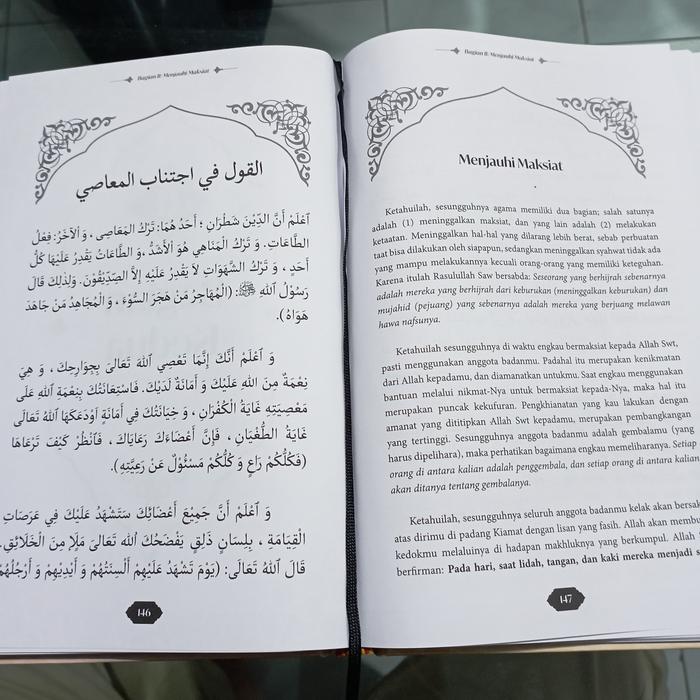 Bagian II: Menjauhi Maksiat
القول في اجتناب المعاصي
اَعْلَمْ أَنَّ الدِّيْنَ شَطْرَانِ ؛ أَحَدُ هُمَا: تَرْكُ المَعَاصِى ، وَ الآخَرُ: فِعْلُ
الطَّاعَاتِ. وَ تَرْكُ المَنَاهِي هُوَ الأَشَدُّ ،وَ الطَّاعَاتُ يَقْدِرُ عَلَيْهَا كُلُّ
أَحَدٍ ، وَ تَرْكُ الشَّهَوَاتِ لاَ يَقْدِرُ عَلَيْهِ إِلاَّ الصِّدِّيْقُوْنَ. وَلِذٰلِكَ قَالَ
رَسُوْلُ اللهِ ﷺ: (الْمُهَاجِرُ مَنْ هَجَرَ السُّوْءَ ، وَ الْمُجَاهِدُ مَنْ جَاهَدَ
هَوَاهُ).
وَ اَعْلَمْ أَنَّكَ إِنَّمَا تَعْصِي اللهَ تَعَالَىٰ بِجَوَارِحِكَ ، وَ هِيَ
نِعْمَةٌ مِنَ اللهِ عَلَيْكَ وَ أَمَانَةٌ لَدَيْكَ. فَاسْتِعَانَتُكَ بِنِعْمَةِ اللهِ عَلَى
مَعْصِيَتِهِ غَايَةُ الْكُفْرَانِ ، وَ خِيَانَتُكَ فِي أَمَانَةٍ أَوْدَعَكَهَا اللهُ تَعَالَى
غَايَةُ الطُّغْيَانِ ، فَإِنَّ أَعْضَاءَكَ رَعَايَاكَ ، فَانْظُرْ كَيْفَ تَرْعَاهَا
(فَكُلُّكُمْ رَاعٍ وَ كُلُّكُمْ مَسْئُوْلٌ عَنْ رَعِيَّتِهِ).
وَ اَعْلَمْ أَنَّ جَمِيْعَ أَعْضَائِكَ سَتَشْهَدُ عَلَيْكَ فِي عَرَصَاتِ
الْقِيَامَةِ ، بِلِسَانٍ ذَلِقٍ يَفْضَحُكَ الله تَعَالَى مَلإٍ مِنَ الْخَلَائِقِ.
قَالَ اللهُ تَعَالَى: (يَوْمَ تَشْهَدُ عَلَيْهِمْ أَلْسِنَتُهُمْ وَ أَيْدِيْهِمْ وَ أَرْجُلُهُمْ
146
Bagian II: Menjauhi Maksiat
Menjauhi Maksiat
Ketahuilah, sesungguhnya agama memiliki dua bagian; salah satunya
adalah (1) meninggalkan maksiat, dan yang lain adalah (2) melakukan
ketaatan. Meninggalkan hal-hal yang dilarang lebih berat, sebab perbuatan
taat bisa dilakukan oleh siapapun, sedangkan meninggalkan syahwat tidak ada
yang mampu melakukannya kecuali orang-orang yang memiliki keteguhan.
Karena itulah Rasulullah Saw bersabda: Seseorang yang berhijrah sebenarnya
adalah mereka yang berhijrah dari keburukan (meninggalkan keburukan) dan
mujahid (pejuang) yang sebenarnya adalah mereka yang berjuang melawan
hawa nafsunya.
Ketahuilah sesungguhnya di waktu engkau bermaksiat kepada Allah Swt,
pasti menggunakan anggota badanmu. Padahal itu merupakan kenikmatan
dari Allah kepadamu, dan diamanatan untukmu. Saat engkau menggunakan
bantuan melalui nikmat-Nya untuk bermaksiat kepada-Nya, maka hal itu
merupakan puncak kekufuran. Pengkhianatan yang kau lakukan dengan
amanat yang dititipkan Allah Swt kepadamu, merupakan pembangkangan
yang tertinggi. Sesungguhnya anggota badanmu adalah gembalamu (yang
harus dipelihara), maka perhatikan bagaimana engkau memeliharanya. Setiap
orang di antara kalian adalah penggembala, dan setiap orang di antara kalian
akan ditanya tentang gembalanya.
Ketahuilah, sesungguhnya seluruh anggota badanmu kelak akan bersak
atas dirimu di padang Kiamat dengan lisan yang fasih. Allah akan membu
kedokmu melaluinya di hadapan makhluknya yang berkumpul. Allah
berfirman: Pada hari, saat lidah, tangan, dan kaki mereka menjadi s
147